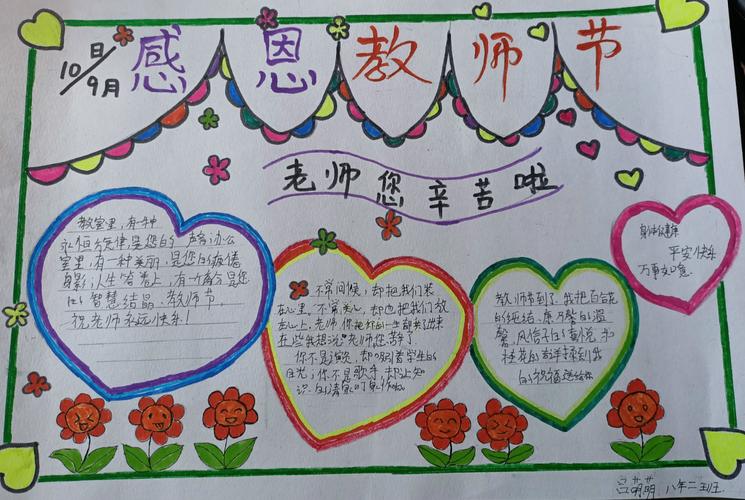 感恩教师节
10日/9月
老师您辛苦啦
教室里,有一种
永恒旋律是您的声音;办公
室里,有一种美丽,是您的疲倦
身影;人生答卷上,有一份满分是您
的智慧结晶.教师节
祝老师永远快乐!
不常问候,却把我们装
在心里,不常关心,却也把我们放
在心上,老师,你把你的一生都
在此我想说"老师您辛苦了
你不是演员,却吸引着学生的
目光;你不是歌手,却让知
识的清泉叮咚作响
教师节到了,我把百合花
的纯洁,康乃馨的温
馨,风信子的喜悦,和
桂花的
的祝福送给你
身体健康
平安快乐
万事如意
吕萌萌 八年二班